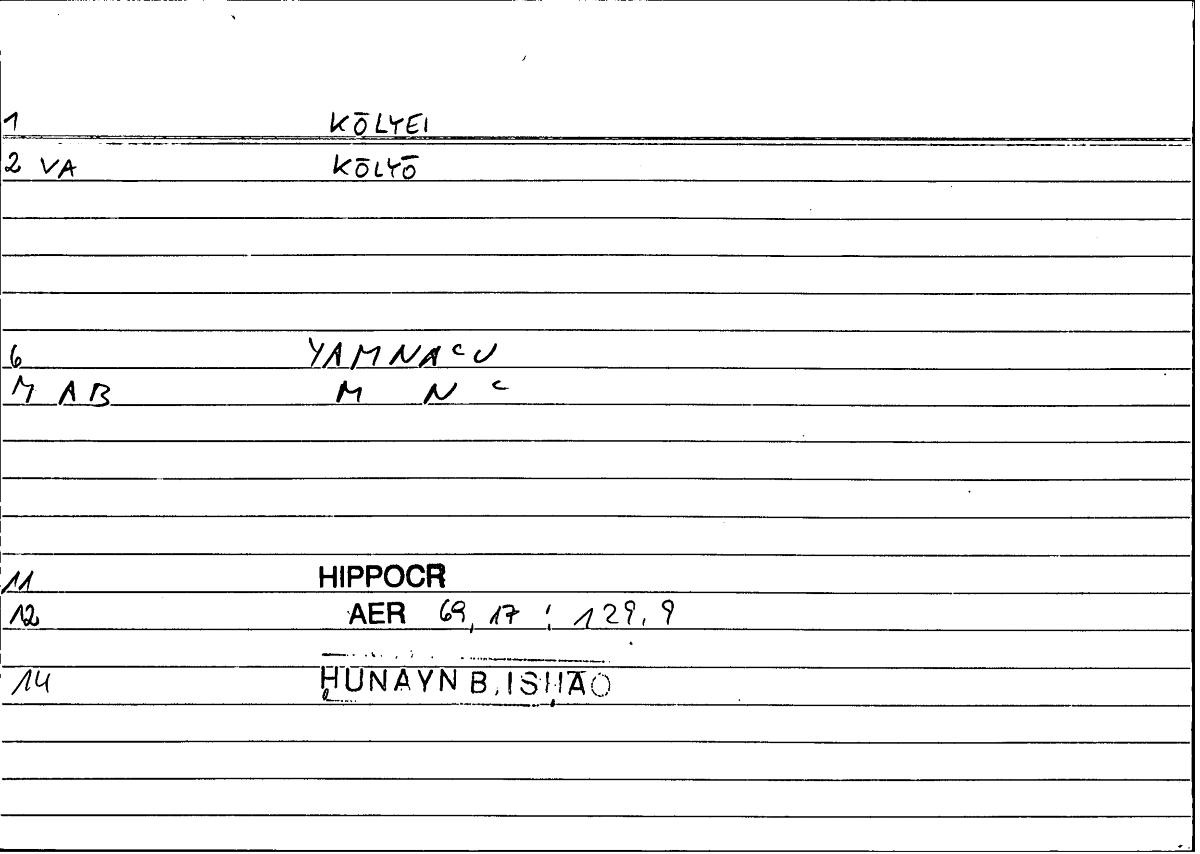 1 KŌLYEI
2 VA KŌLYŌ
6 YAMNAᶜU
M AB M N ᶜ
11 HIPPOCR
12 AER 69,17 ; 129,9
14 ḤUNAYN B.ISḤĀQ